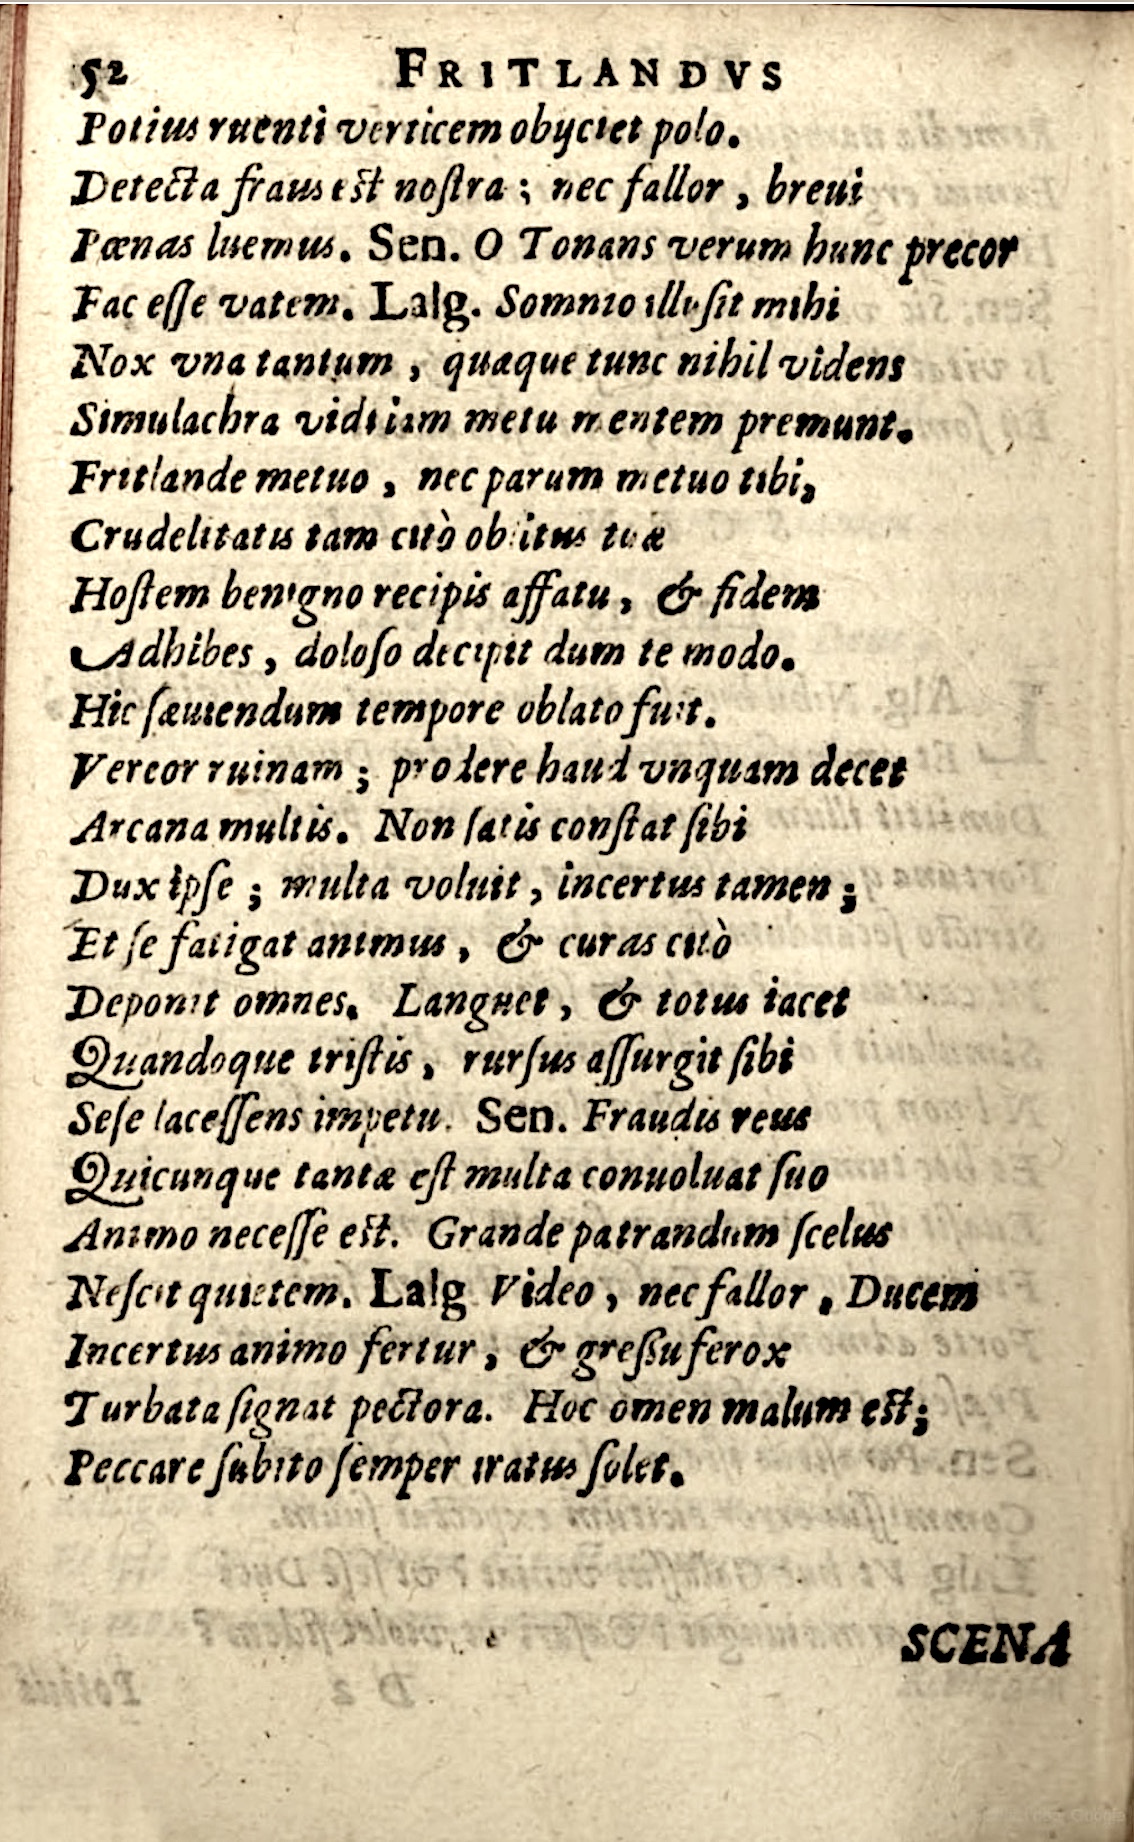 52 FRITLANDVS
Potius ruenti verticem obyciet polo.
Detecta fraus est noſtra ; nec fallor , breui
Pœnas luemus. Sen. O Tonans verum hunc precor
Fac eſſe vatem. Lalg. Somnio illuſit mihi
Nox vna tantum , quæque tunc nihil videns
Simulachra vidi iam metu mentem premunt.
Fritlande metuo , nec parum metuo tibi,
Crudelitatis tam citò oblitus tuæ
Hoſtem benigno recipis affatu , & fidem
Adhibes , doloſo decipit dum te modo.
Hic ſæuiendum tempore oblato fuit.
Vereor ruinam ; prodere haud vnquam decet
Arcana multis. Non ſatis conſtat ſibi
Dux ipſe ; multa voluit , incertus tamen ;
Et ſe fatigat animus , & curas citò
Deponit omnes. Languet , & totus iacet
Quandoque triſtis , rurſus aſſurgit ſibi
Seſe laceſſens impetu. Sen. Fraudis reus
Quicunque tantæ eſt multa conuoluat ſuo
Animo neceſſe est. Grande patrandum ſcelus
Neſcit quietem. Lalg Video , nec fallor , Ducem
Incertus animo fertur , & greſſu ferox
Turbata ſignat pectora. Hoc omen malum est;
Peccare ſubito ſemper iratus ſolet.
SCENA